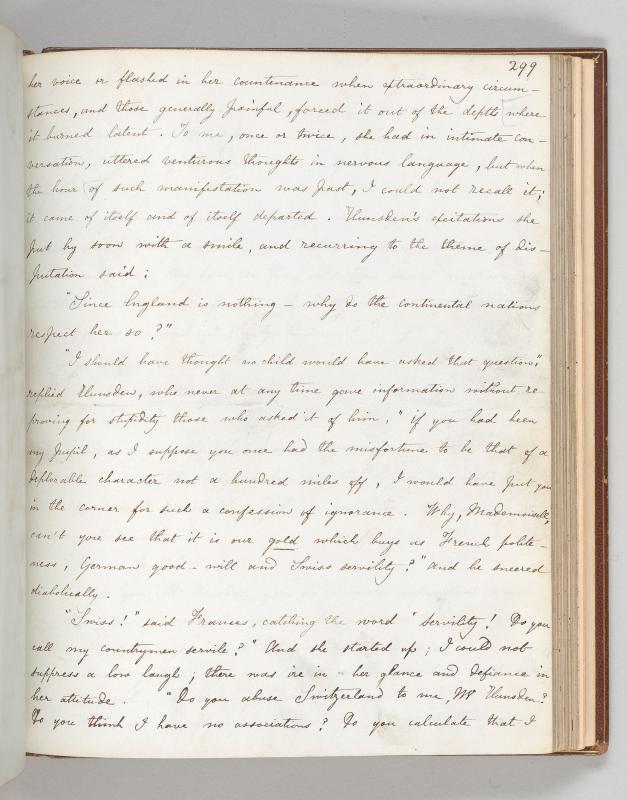 299
her voice or flashed in her countenance when extraordinary circum-
stances, and those generally painful, forced it out of the depths where
it burned latent. To me, once or twice, she had in intimate con-
versation, uttered venturous thoughts in nervous language, but when
the hour of such manifestation was past, I could not recall it;
it came of itself and of itself departed. Hunsden's excitations she
put by soon with a smile, and recurring to the theme of dis-
putation said:
"Since England is nothing – why do the continental nations
respect her so?"
"I should have thought no child would have asked that question",
replied Hunsden, who never at any time gave information without re-
proving for stupidity those who asked it of him, "if you had been
my pupil, as I suppose you once had the misfortune to be that of a
deplorable character not a hundred miles off, I would have put you
in the corner for such a confession of ignorance. Why, Mademoiselle,
can't you see that it is our gold which buys us French polite-
ness, German good-will and Swiss servility?" and he sneered
diabolically.
"Swiss!" said Frances, catching the word "servility! Do you
call my countrymen servile?" And she started up; I could not
suppress a low laugh; there was ire in her glance and defiance in
her attitude. "Do you abuse Switzerland to me, Mr Hunsden?
Do you think I have no associations? Do you calculate that I